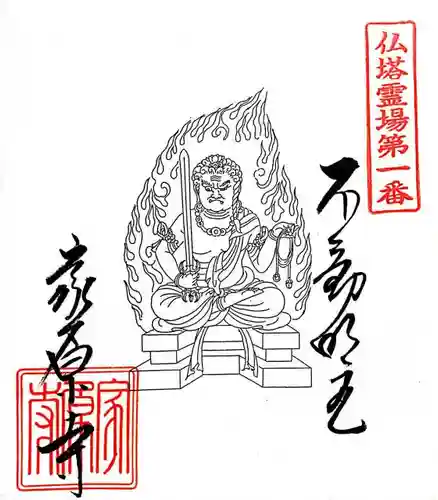 仏塔霊場第一番
不動明王
家原寺